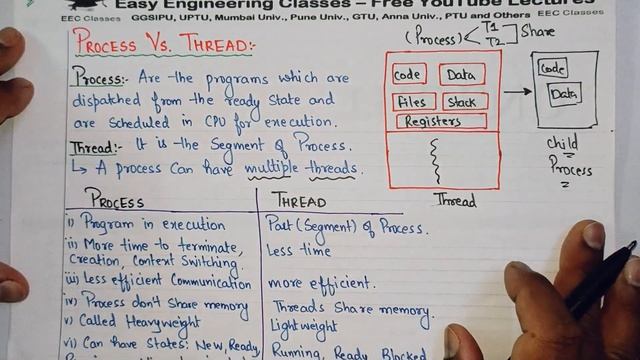 Easy Engineering Classes – Free YouTube Lectures
EEC Classes GGSIPU, UPTU, Mumbai Univ., Pune Univ., GTU, Anna Univ., PTU and Others EEC Classes
PROCESS VS. THREAD:-
(Process) < T1 T2 ] Share
Process:- Are the programs which are
dispatched from the ready State and
are scheduled in CPU for execution.
Thread:- It is the Segment of Process.
↳ A process can have multiple threads.
Code Data
Files Stack
Registers
Thread
Code
Data
child
Process
PROCESS THREAD
i) Program in execution Part (Segment) of Process.
ii) More time to terminate, Less time
Creation, Context Switching.
iii) Less efficient Communication more efficient.
iv) Process don't Share memory Threads Share memory.
v) Called Heavyweight Lightweight
vi) Can have States: New, Ready, Running, Ready, Blocked